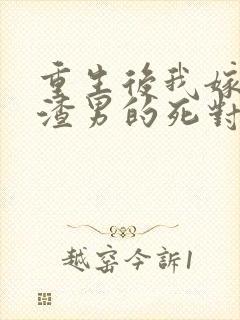 重生後我嫁
渣男的死對
越窑今訴1